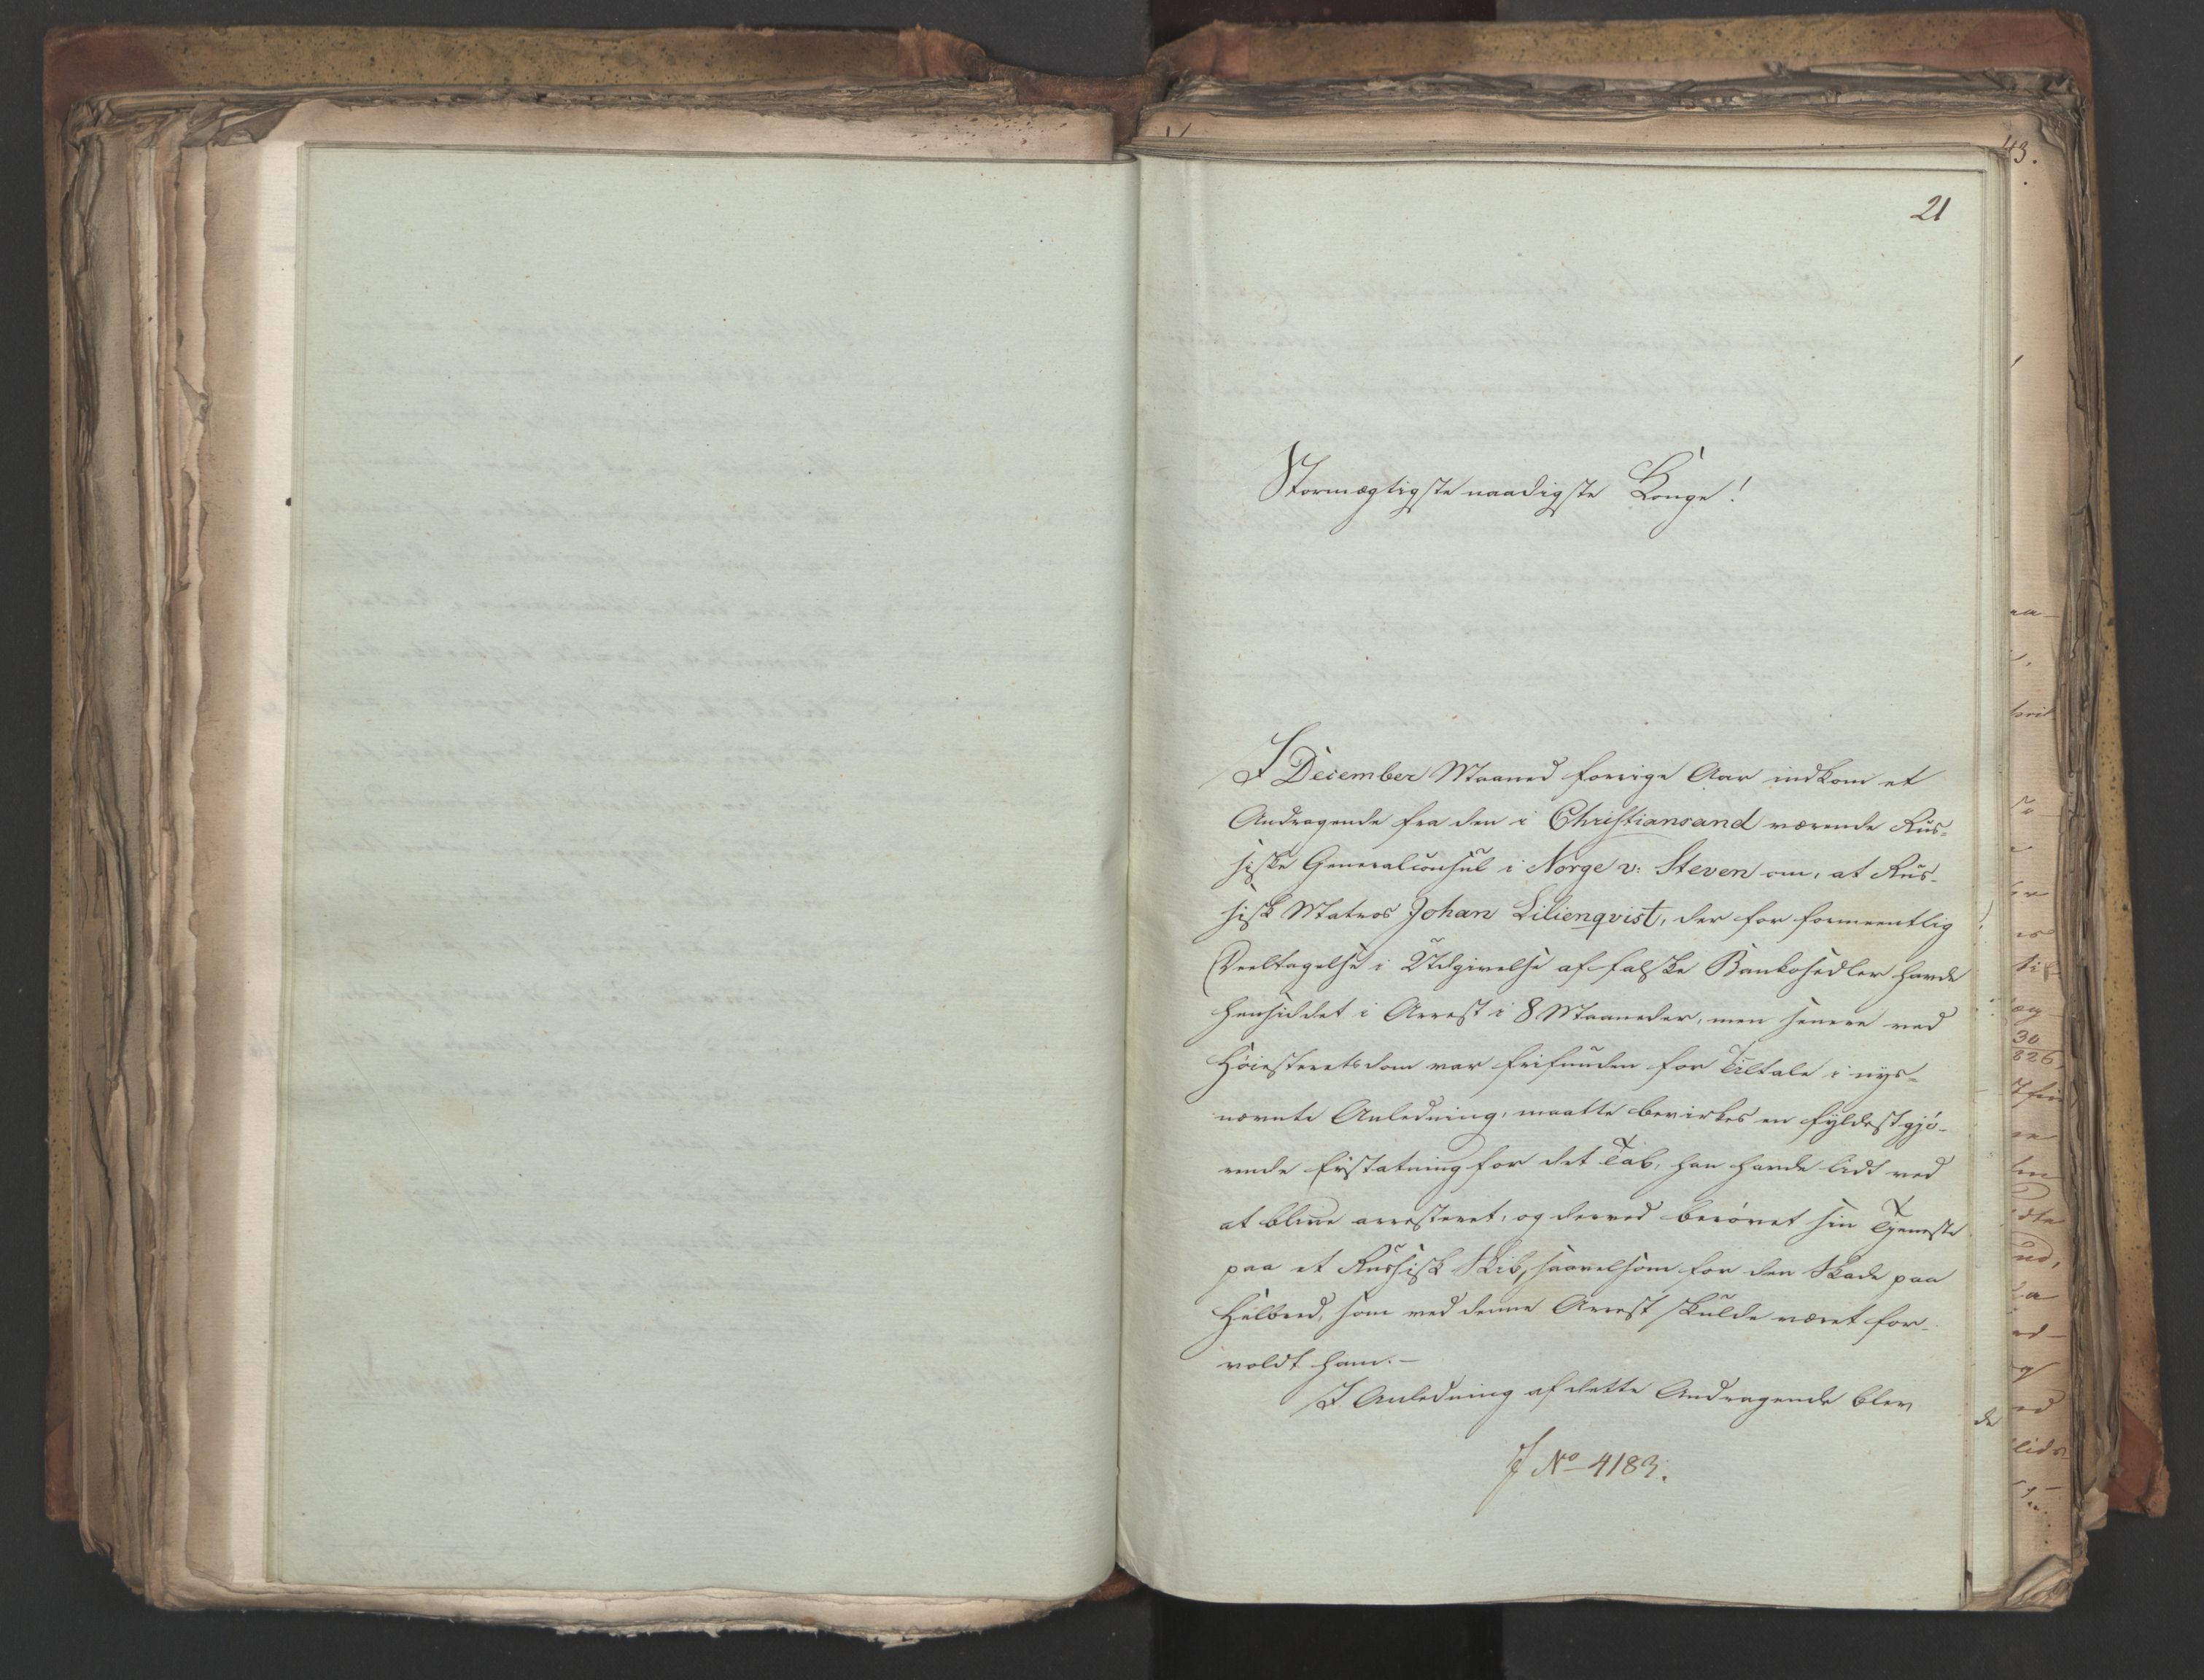 43.
21
Stormægtigste naadigste Konge!
I December Maaned forrige Aar indkom et
Andragende fra den i Christiansand værende Rus=
siske Generalconsul i Norge v: Steven om, at Rus-
sisk Matros Johan Lilienqvist, der for formeentlig
Deeltagelse i Udgivelse af falske Bankosedler havde
hensiddet i Arrest i 8 Maaneder, men senere ved
Høiesteretsdom var frifunden for Tiltale i nys-
nævnte Anledning, maatte bevirkes en fyldestgjö-
rende Erstatning for det Tab, han havde lidt ved
at blive arresteret, og derved berövet sin Tjeneste
paa et Russisk Skib, saavelsom for den Skade paa
Helbred, som ved denne Arrest skulde været for-
voldt ham.-
I Anledning af dette Andragende blev
J No 4183.